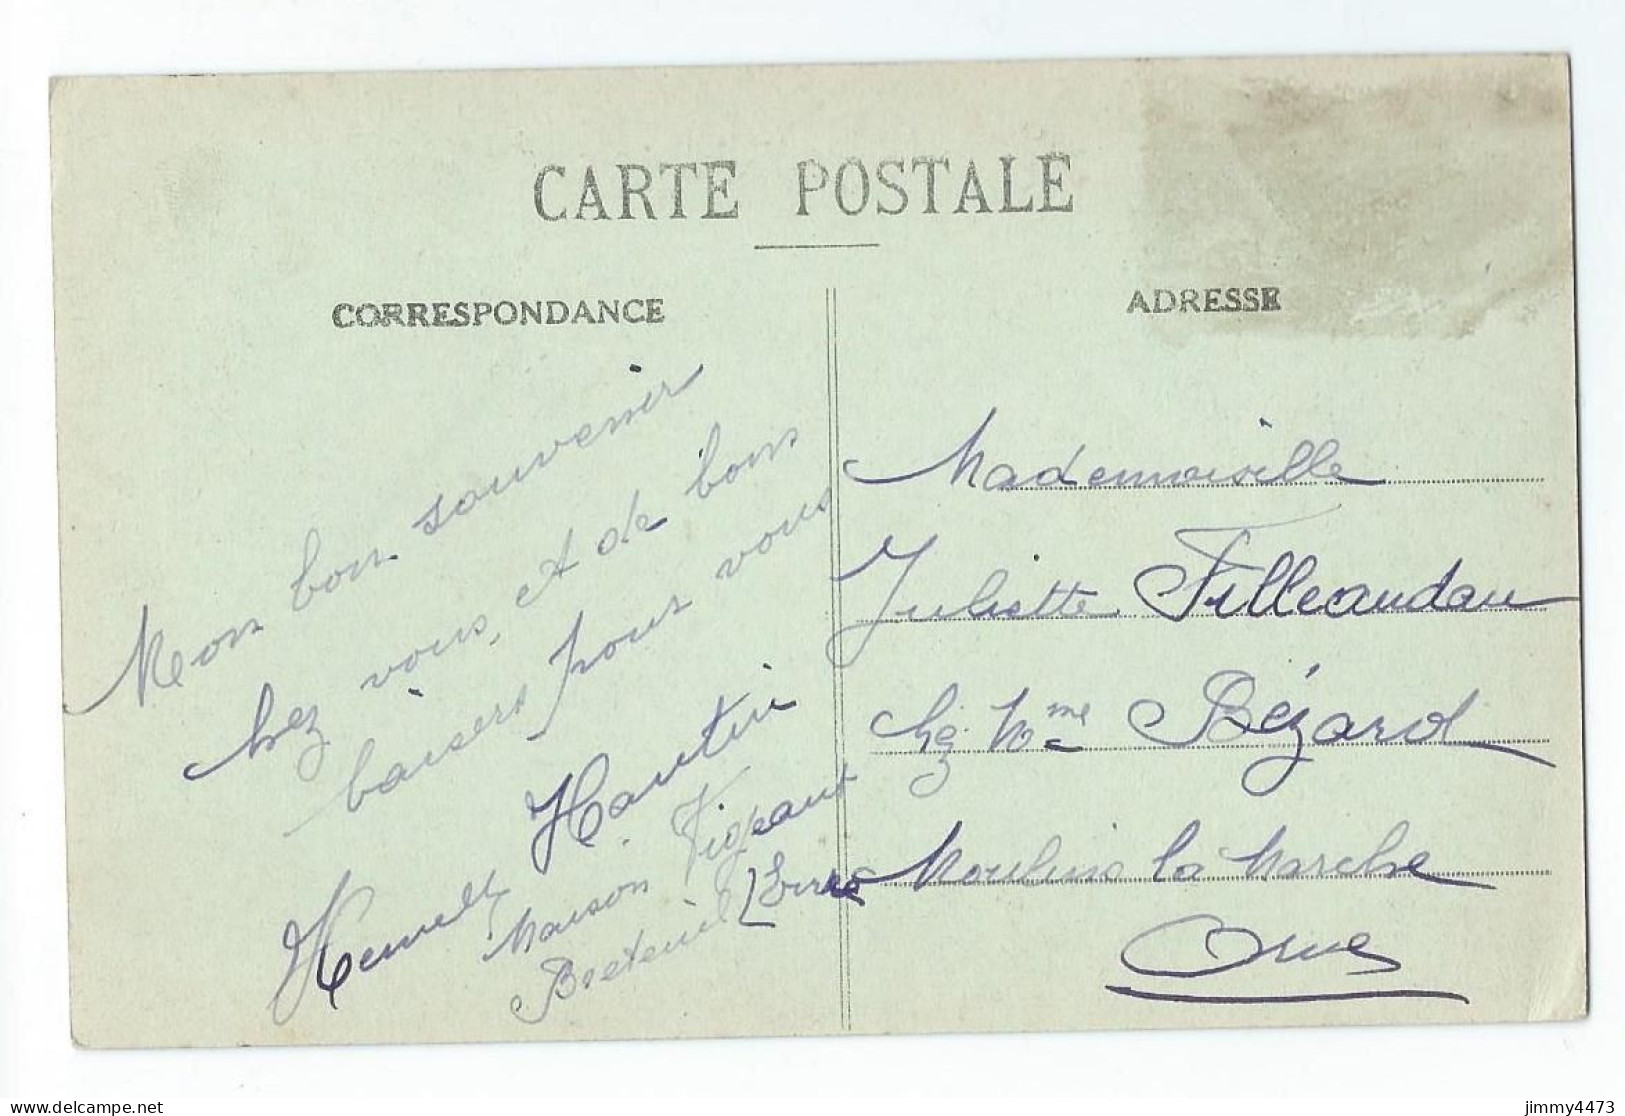 CARTE POSTALE
CORRESPONDANCE
Mon bon souvenir
chez vous, et de bons
baisers pour vous
Hautin
Maison Vigeant
Breteuil
ADRESSE
Mademoiselle
Juliette Filleaudau
chez Mme Bézard
Moulins la Marche
Orne
delcampe.net
jimmy4473